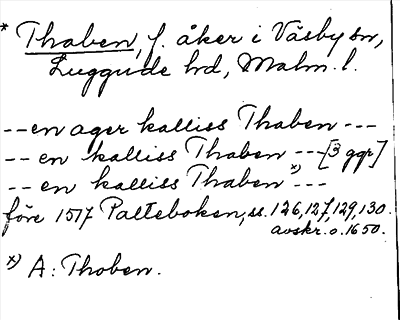 * Thaben, f. åker i Väsby sn,
Luggude hd, Malm. l.
-- en ager kalliss Thaben ---
-- en kalliss Thaben --- [3 ggr]
-- en kalliss Thaben x) ---
före 1517 Palteboken, ss. 126, 127, 129, 130.
avskr. o. 1650.
x) A: Thoben.